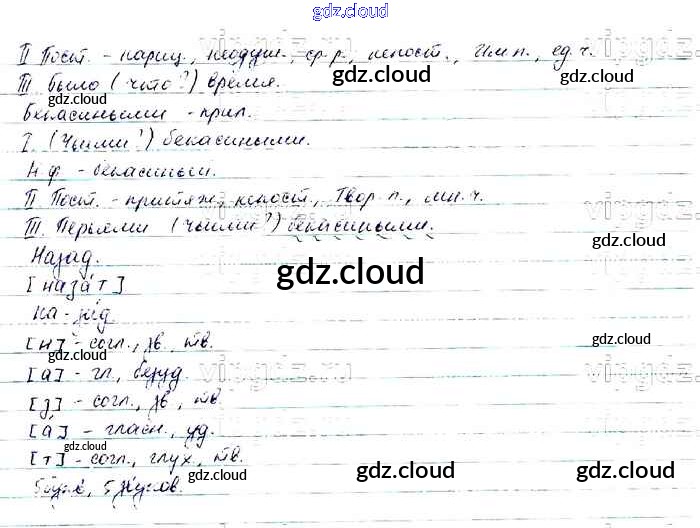 gdz.cloud
II Пост. - нариц., неодуш., ср.р., непост., Им.п., ед.ч.
III. Было (что?) время.
Бекасиными - прил.
I. (Чьими?) бекасиными.
Н.ф. - бекасиный.
II Пост. - притяж., непост., Твор.п., мн.ч.
III. Перьями (чьими?) бекасиными.
Назад.
[наза́т]
На-зад.
[н] - согл., зв., тв.
[а] - гл., безуд.
[з] - согл., зв., тв.
[а́] - гласн., уд.
[т] - согл., глух., тв.
5 букв, 5 звуков.
gdz.cloud
gdz.cloud
gdz.cloud
gdz.cloud
gdz.cloud
gdz.cloud
gdz.cloud
gdz.cloud
gdz.cloud
gdz.cloud
gdz.cloud